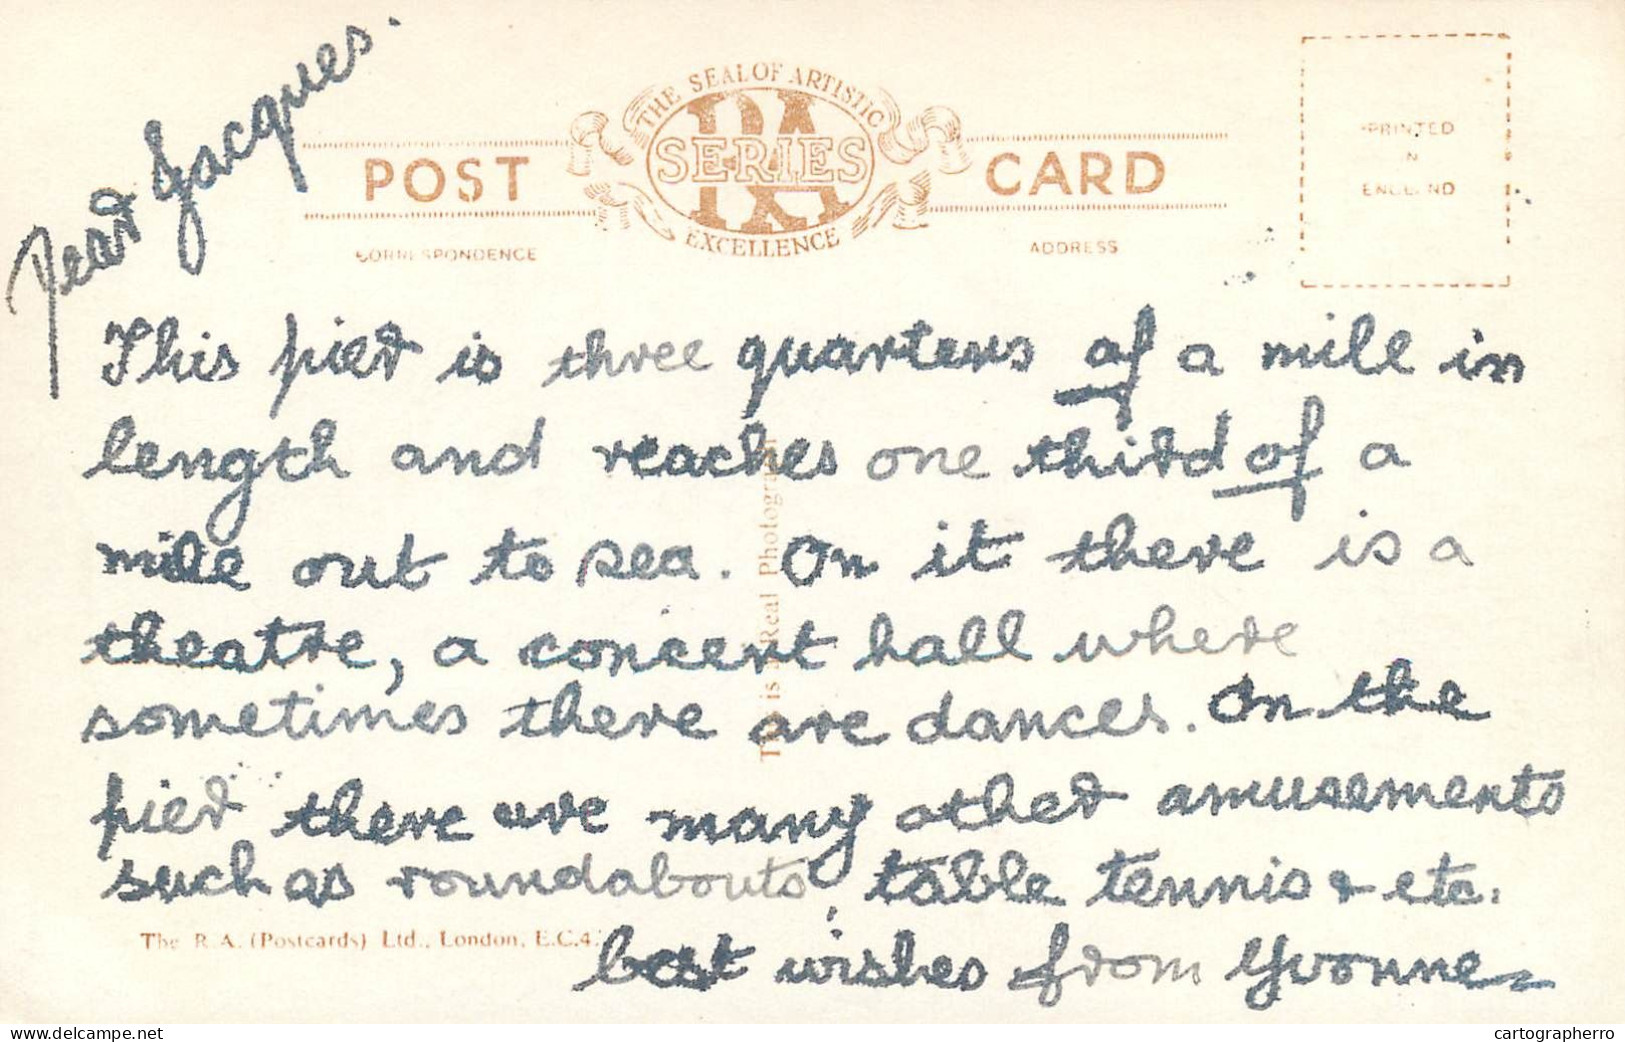 Dear Jacques.
THE SEAL OF ARTISTIC
RA
SERIES
EXCELLENCE
POST CARD
CORRESPONDENCE
ADDRESS
PRINTED
IN
ENGLAND
This pier is three quarters of a mile in
length and reaches one third of a
mile out to sea. On it there is a
theatre, a concert hall where
sometimes there are dances. On the
pier there are many other amusements
such as roundabouts, table tennis & etc.
best wishes from Yvonne
This is a Real Photograph
The R.A. (Postcards) Ltd., London, E.C.4.
www.delcampe.net
cartographerro